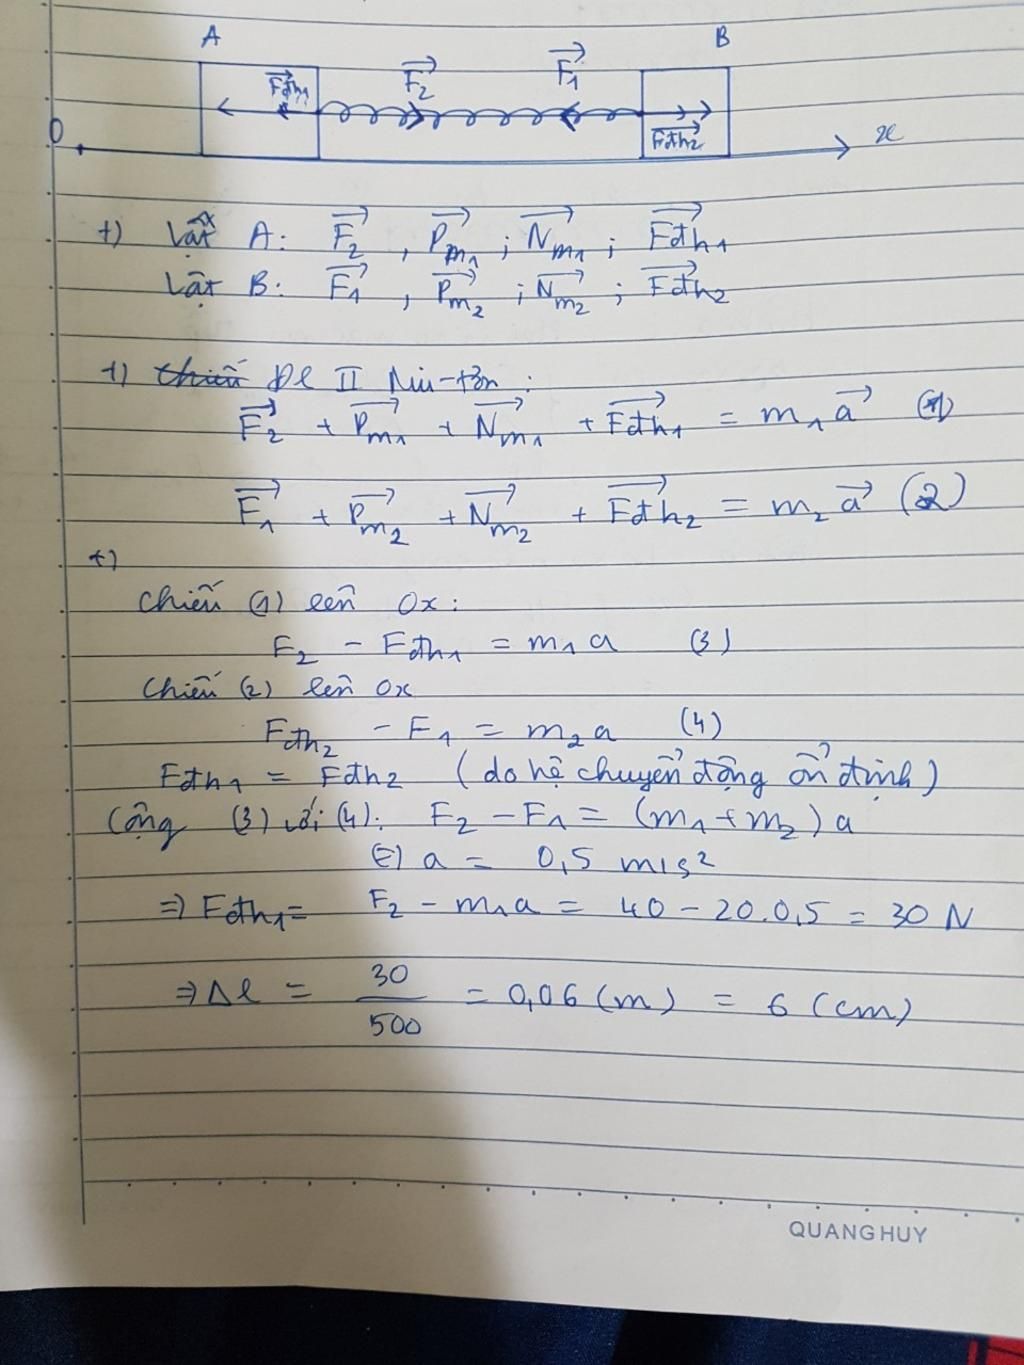 A B
Fđh₁ F₂ F₁ Fđh₂
O x
+) Vật A: F₂, Pm₁; Nm₁; Fđh₁
Vật B: F₁, Pm₂; Nm₂; Fđh₂
+) Chiếu ĐL II Niu-tơn:
F₂ + Pm₁ + Nm₁ + Fđh₁ = m₁a (1)
F₁ + Pm₂ + Nm₂ + Fđh₂ = m₂a (2)
+)
Chiếu (1) lên Ox:
F₂ - Fđh₁ = m₁a (3)
Chiếu (2) lên Ox
Fđh₂ - F₁ = m₂a (4)
Fđh₁ = Fđh₂ (do hệ chuyển động ổn định)
Cộng (3) với (4): F₂ - F₁ = (m₁ + m₂) a
(=) a = 0,5 m/s²
=> Fđh₁ = F₂ - m₁a = 40 - 20.0,5 = 30 N
=> Δl = 30/500 = 0,06 (m) = 6 (cm)
QUANG HUY